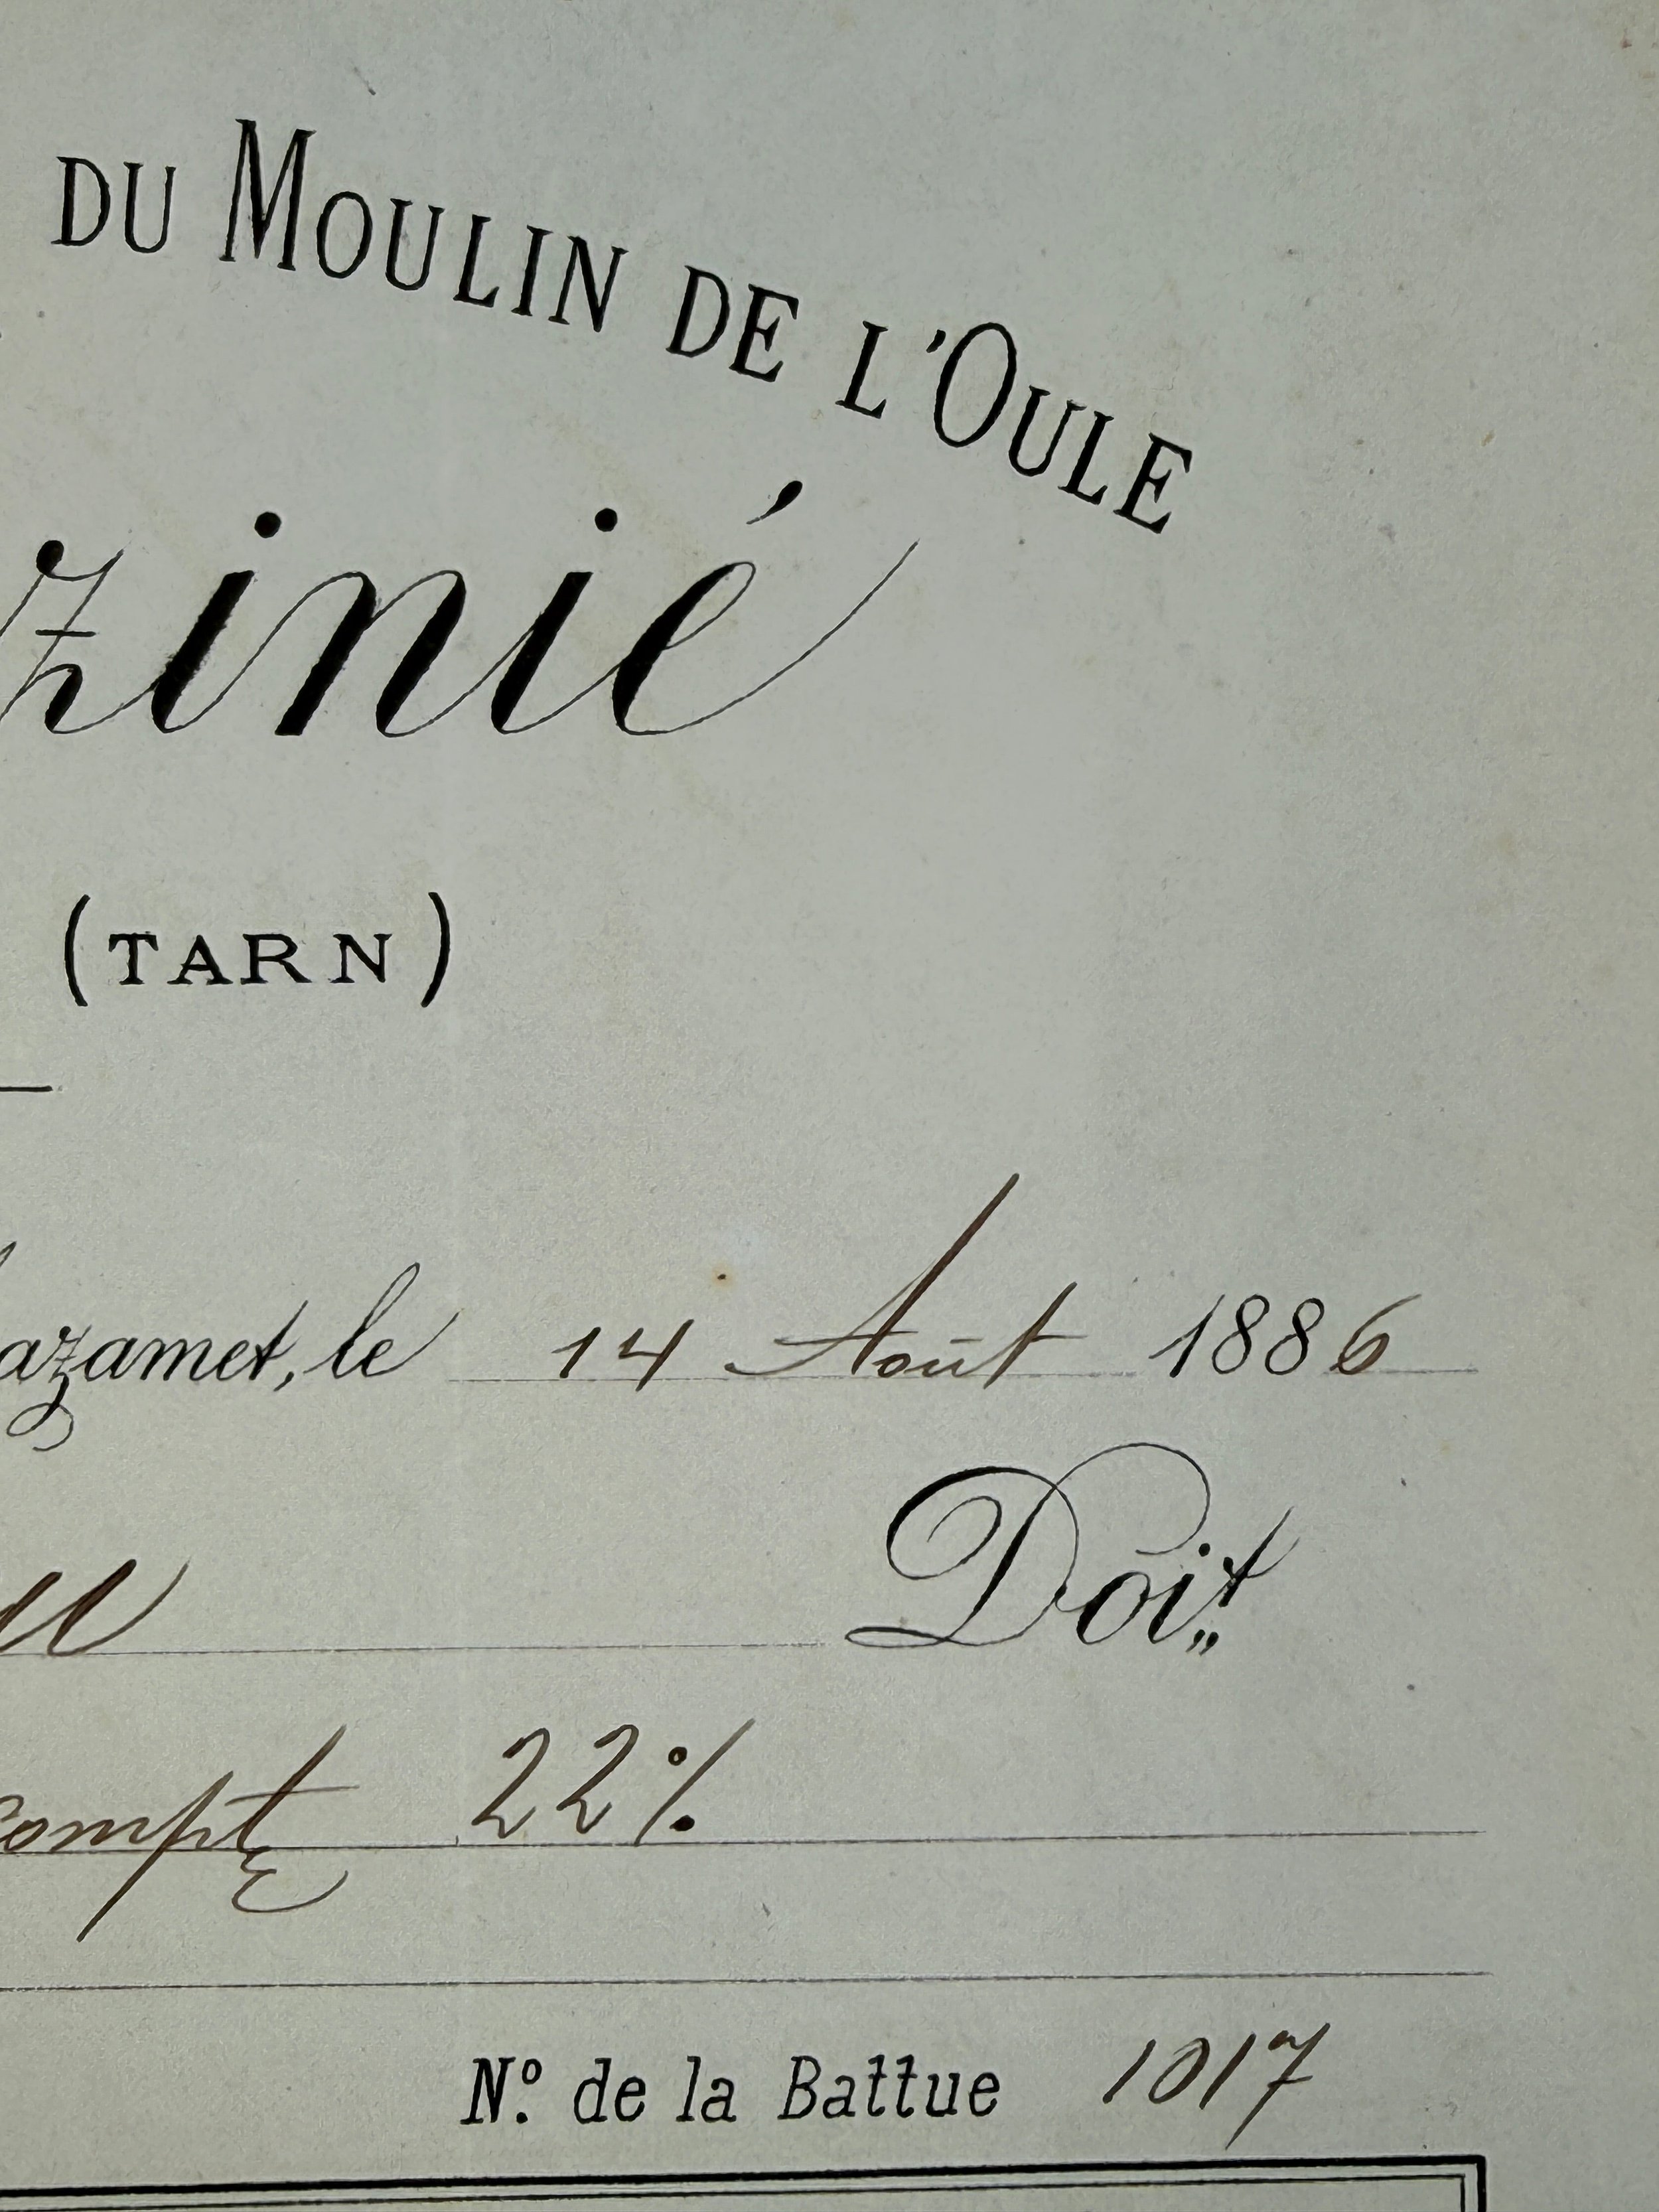 DU MOULIN DE L'OULE
zinié
(TARN)
azamet, le 14 Août 1886
Doit,,
compte 22%
N.º de la Battue 1017